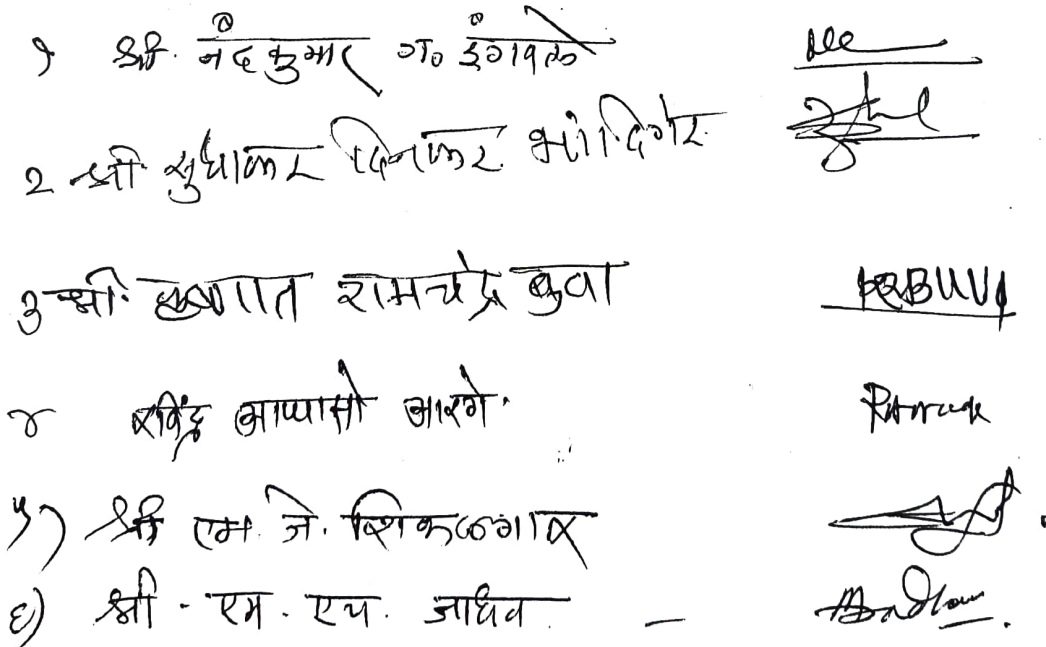 १ श्री. नंदकुमार ग. इंगवले
२ श्री सुधाकर दिनकर भांदिगरे
३ श्री. कृष्णात रामचंद्र बुवा KRBUVA
४ रविंद्र आप्पासो आरगे.
५) श्री एम. जे. शिकलगार
६) श्री. एम. एच. जाधव